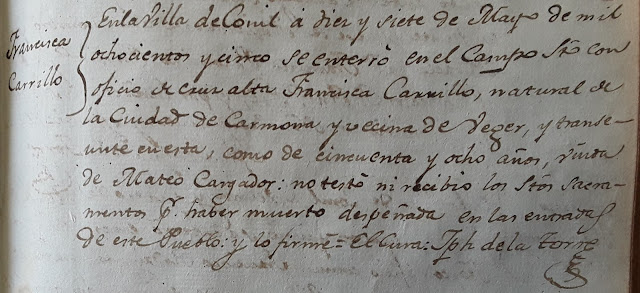 Francisca
Carrillo
En la Villa de Conil á diez y siete de Mayo de mil
ochocientos y cinco se enterrò en el Campo Sto con
oficio de cruz alta Francisca Carrillo, natural de
la Ciudad de Carmona y vecina de Veger, y transe-
unte en esta, como de cincuenta y ocho años, viuda
de Mateo Cargador: no testó ni recibio los Stos Sacra-
mentos pr. haber muerto despeñada en las entradas
de este Pueblo: y lo firmè = El Cura: Jph de la Torre